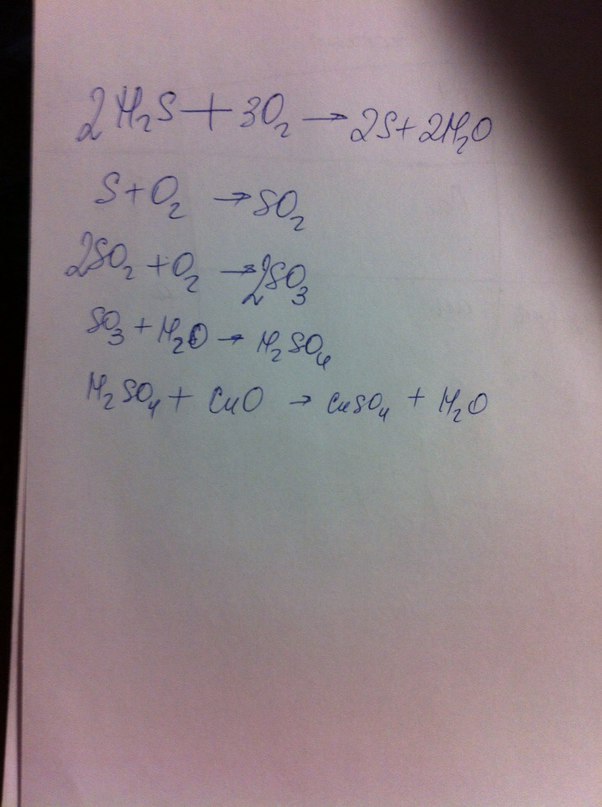 2H₂S + 3O₂ → 2S + 2H₂O
S + O₂ → SO₂
2SO₂ + O₂ → 2SO₃
SO₃ + H₂O → H₂SO₄
H₂SO₄ + CuO → CuSO₄ + H₂O